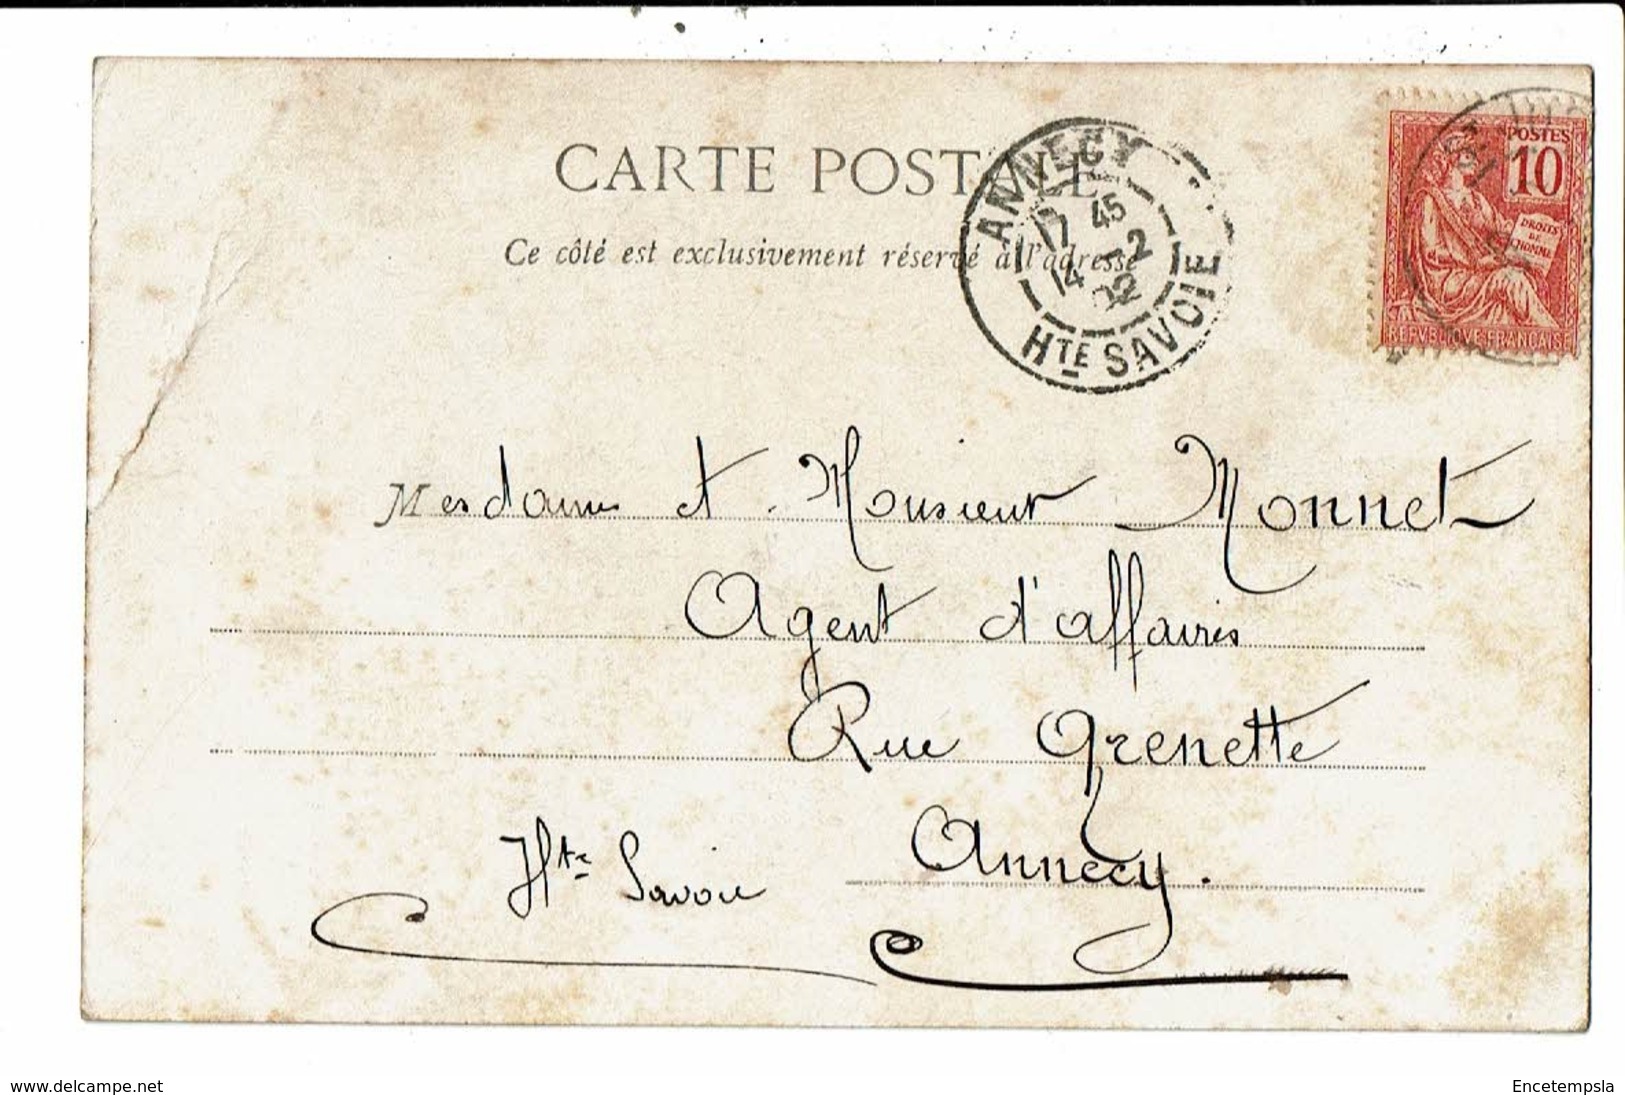 CARTE POSTALE
Ce côté est exclusivement réservé à l'adresse
ANNECY
17 45
14 -2
02
HTE SAVOIE
POSTES
10
DROITS
DE
L'HOMME
REPVBLIQVE FRANCAISE
Mesdames et Monsieur Monnet
Agent d'affaires
Rue Grenette
Annecy.
Hte Savoie
www.delcampe.net
Encetempsla